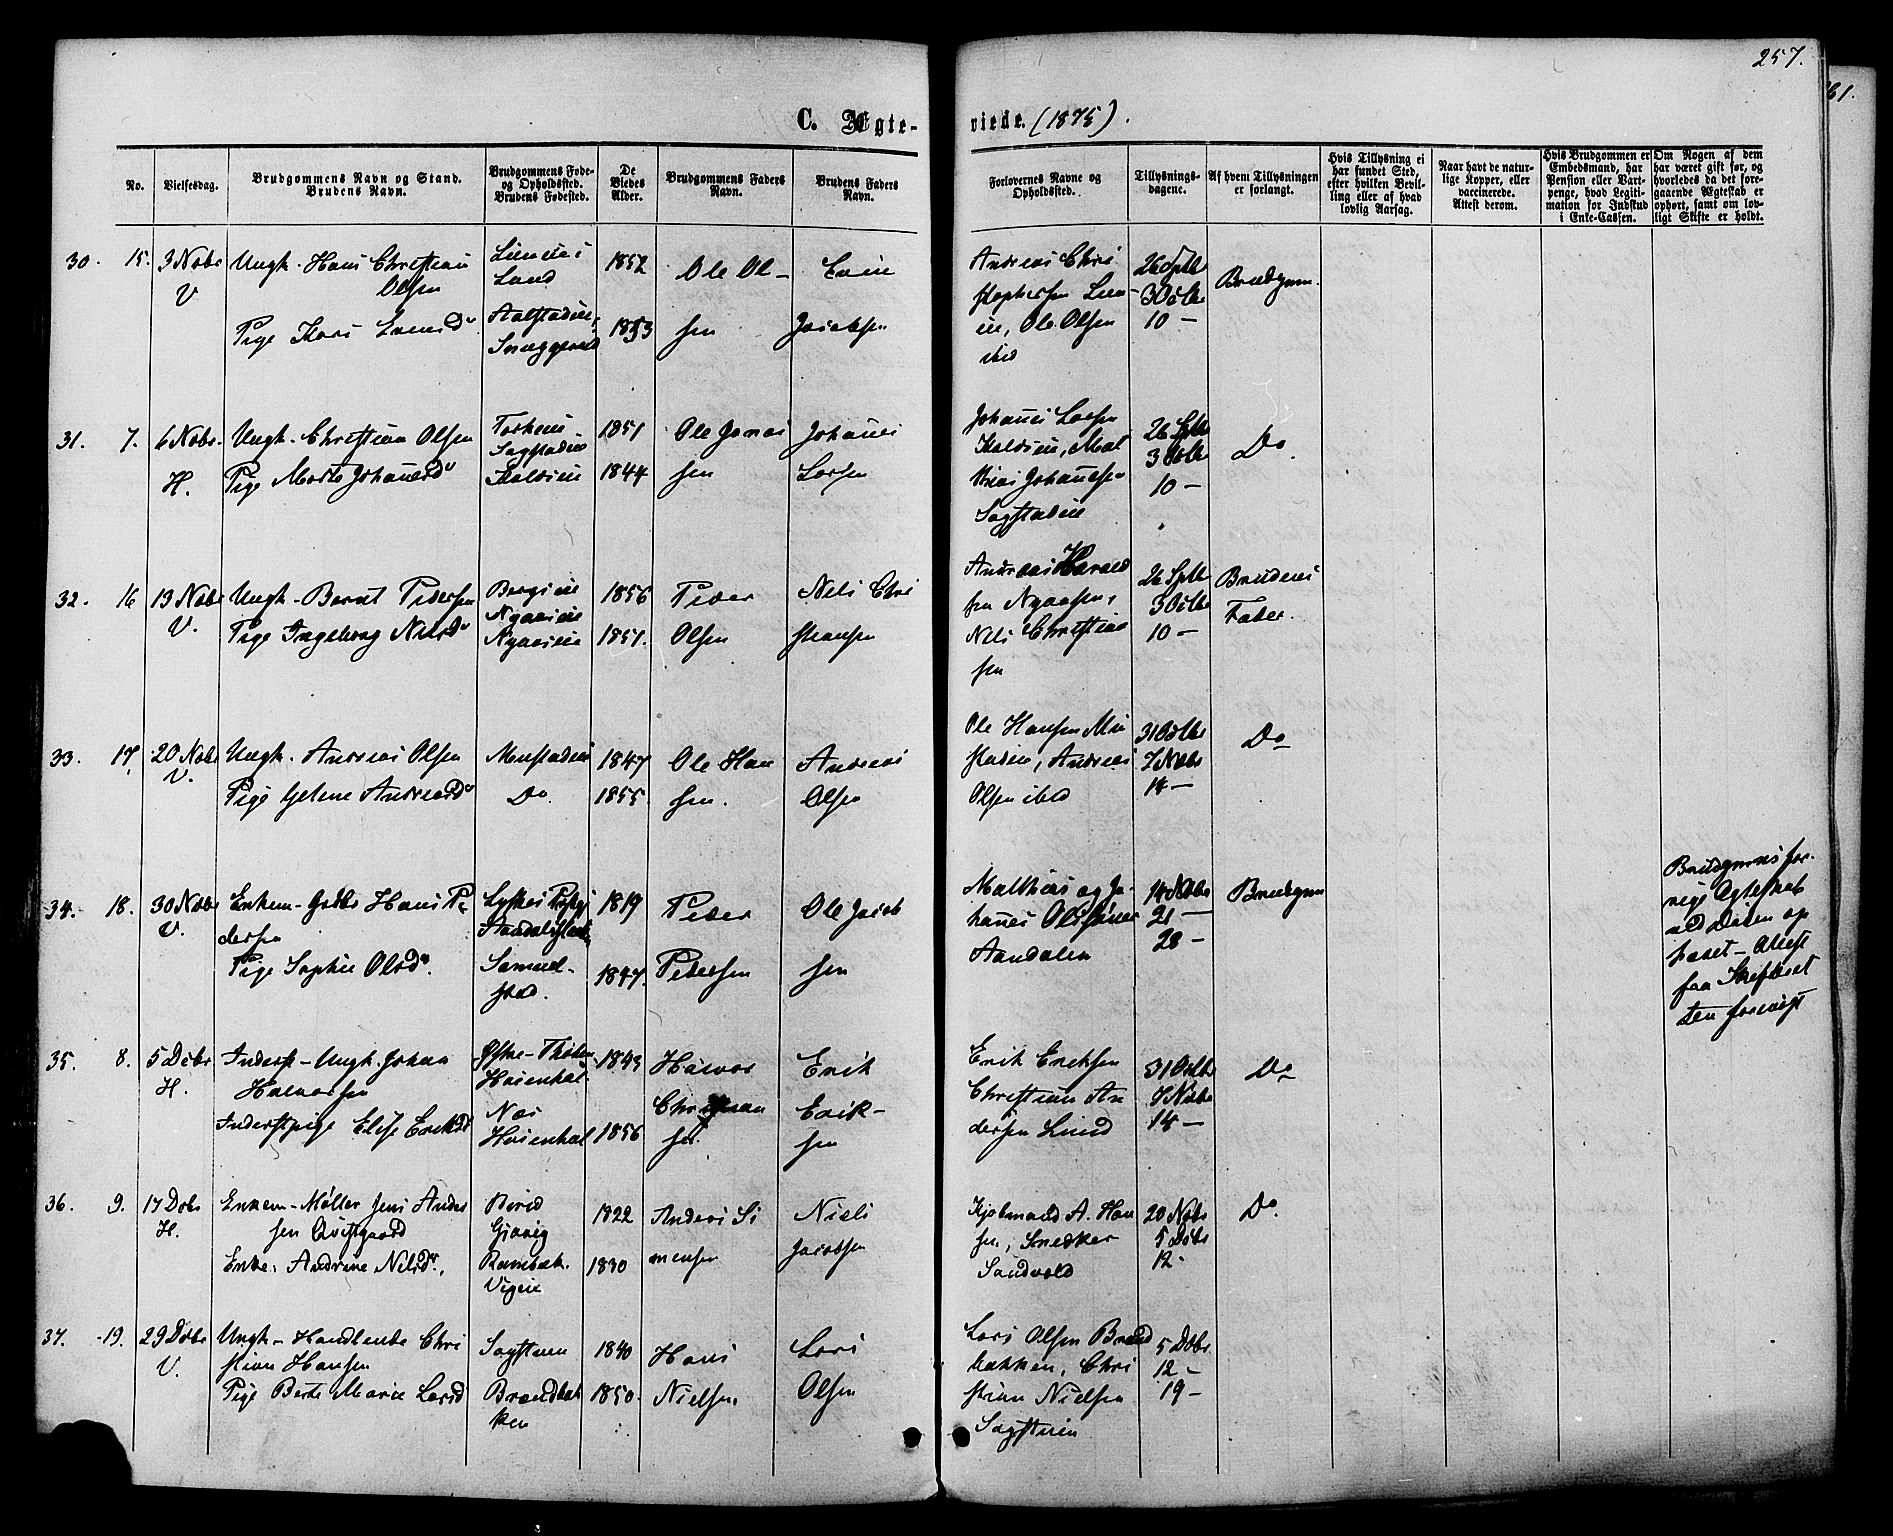 257.
61.
C. Ægte-
viede. (1875).
No.
Vielsesdag.
Brudgommens Navn og Stand.
Brudens Navn.
Brudgommens Føde-
og Opholdssted.
Brudens Fødested.
De
Viedes
Alder.
Brudgommens Faders
Navn.
Brudens Faders
Navn.
Forlovernes Navne og
Opholdssted.
Tillysnings-
dagene.
Af hvem Tillysningen
er forlangt.
Hvis Tillysning ei
har fundet Sted,
efter hvilken Bevil-
ling eller af hvad
lovlig Aarsag.
Naar havt de natur-
lige Kopper, eller
vaccinerede.
Attest derom.
Hvis Brudgommen er
Embedsmand, har
Pension eller Vart-
penge, hvad Legiti-
mation for Indskud
i Enke-Cassen.
Om Nogen af dem
har været gift før, og
hvorledes da det fore-
gaaende Ægteskab er
ophørt, samt om lov-
ligt Skifte er holdt.
30. 15. 3 Nobr
V
Ungk. Hans Christian
Olsen
Pige Kari Evensd
Land
1852
1853
Ole Ol-
sen
Even
Jacobsen
Andreas Chri
stophersen
Ole Olsen
ibid
26 Sptb
3 Octbr
10 –
Brudgom.
31. 7. 6 Nobr.
H.
Ungk. Christian Olsen
Pige Marte Johannesd
Sagstadeie
1851
1844
Ole Jonas
sen
Johannes
Larsen
Johannes Larsen
Mat
thias Johannesen
Sagstadeie
26 Sptb
3 Octbr
10 –
Do.
32. 16 13 Nobr
V.
Ungk. Bernt Pedersen
Pige Ingeborg Nilsd
Bergseie
Nyaaseie
Nyaaseie
1856
1851.
Peder
Olsen
Nils Chri
stiansen
Andreas Harald
sen Nyaasen,
Nils Christian
sen
26 Sptb
3 Octbr
10 –
Brudens
Fader.
33. 17. 20 Nobr
V.
Ungk. Andreas Olsen
Pige Helene Andreasd
Mustadeie
Do.
1847
1855
Ole Han
sen.
Andreas
Olsen
Ole Hansen Mu
stadeie, Andreas
Olsen ibid
31 Octbr
7 Nobr
14 –
Do
34. 18. 30 Nobr
V.
Enkem. Gdbr Hans Pe
dersen
Pige Sophie Olsd.
Samuel-
stad.
1819
1847.
Peder
Pedersen
Ole Jacob
sen
Matthias og Jo-
hannes Olssønner
Aandalen
14 Nobr
21 –
28 –
Brudgom
Brudgoms for-
rige Ægteskab
ved Døden op
hævet – Attest
fra Skifteret
ten forevist
35. 8. 5 Dcbr
H.
Inderst – Ungk. Johan
Halvorsen
Inderstpige Elise Eriksd
Østre-Thoten
Næs
1843
1856
Halvor
Christian
sen.
Erik
Erik-
sen
Erik Eriksen
Christian An
dersen Lund
31 Octbr
7 Nobr
14 –
Do
36. 9. 17 Dcbr
H.
Enkem – Møller Jens Anders
sen Qvistgaard
Enke: Andrine Nilsd.
Birid
Gjøvig
Rambæk.
Vigeie
1822
1830
Anders Si
mensen
Niels
Jacobsen
Kjøbmand A. Han
sen, Snedker
Sandvold
20 Nobr
5 Dcbr
12 –
Do
37. 19. 29 Dcbr
V.
Ungk – Handlende Chri
stian Hansen
Pige Berte Marie Larsd
Sagstuen
Brændbak
ken
1840
1850.
Hans
Nielsen
Lars
Olsen
Lars Olsen Brænd
bakken, Chri
stian Nielsen
Sagstuen
5 Dcbr
12 –
19 –